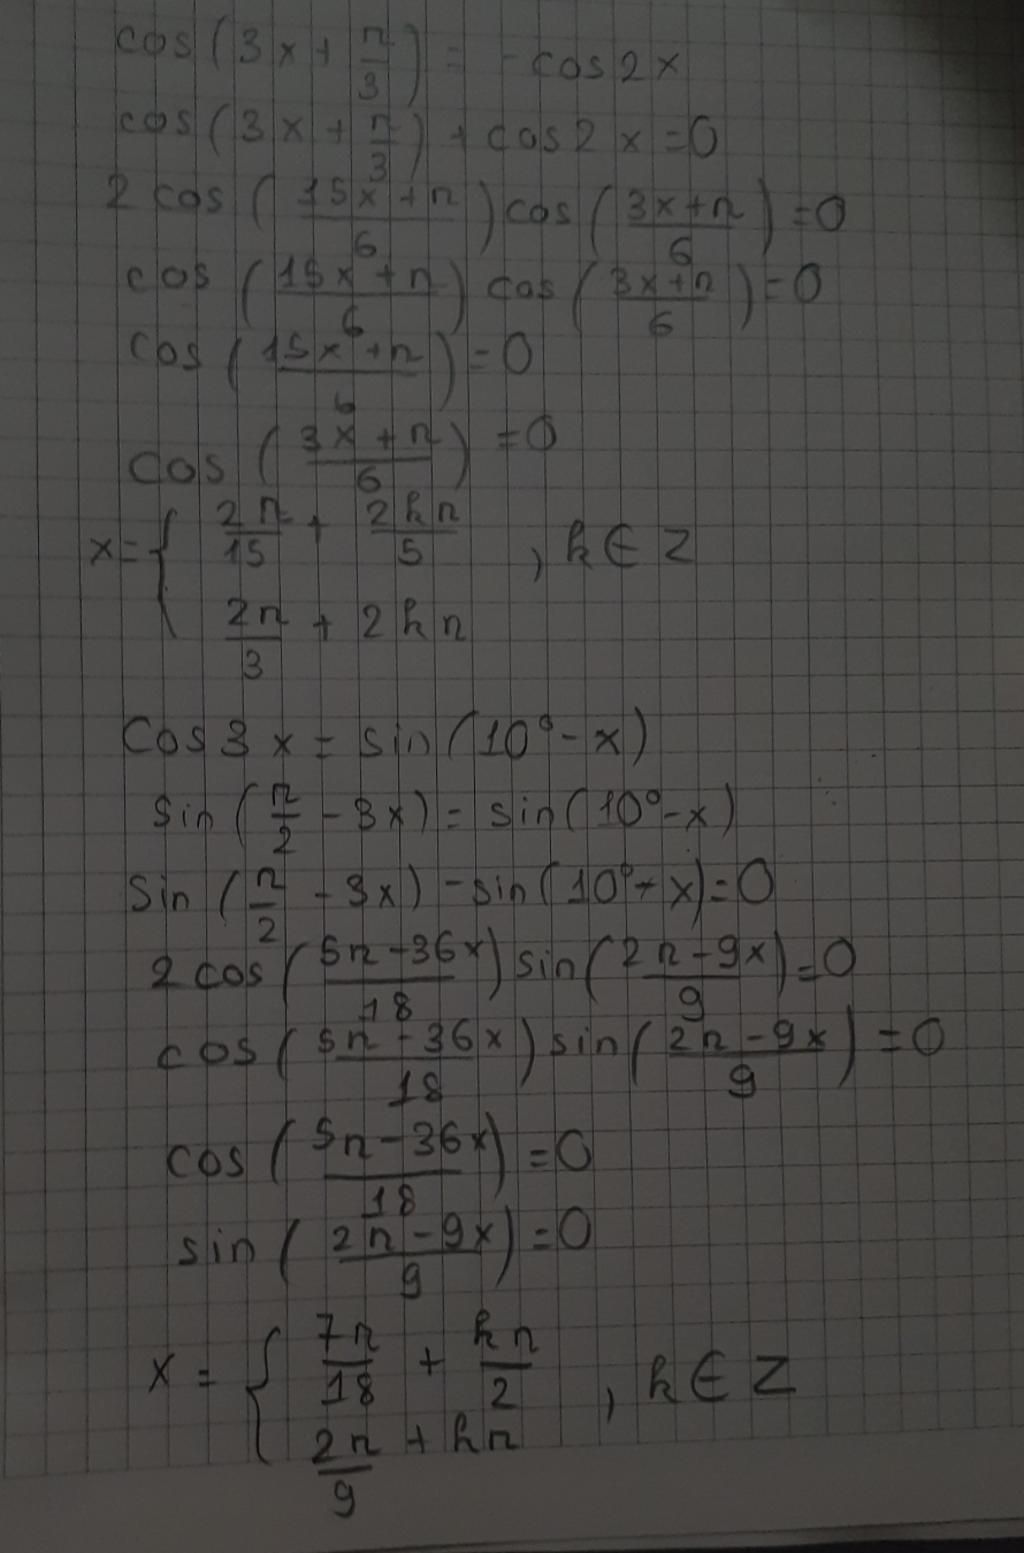 cos(3x + π/3) = -cos2x
cos(3x + π/3) + cos2x = 0
2cos((15x + π)/6)cos((3x + π)/6) = 0
cos((15x + π)/6)cos((3x + π)/6) = 0
cos((15x + π)/6) = 0
cos((3x + π)/6) = 0
x = { 2π/15 + 2kπ/5 , k ∈ Z
2π/3 + 2kπ
cos3x = sin(10° - x)
sin(π/2 - 3x) = sin(10° - x)
sin(π/2 - 3x) - sin(10° - x) = 0
2cos((5π - 36x)/18)sin((2π - 9x)/9) = 0
cos((5π - 36x)/18)sin((2π - 9x)/9) = 0
cos((5π - 36x)/18) = 0
sin((2π - 9x)/9) = 0
x = { 7π/18 + kπ/2 , k ∈ Z
2π/9 + kπ